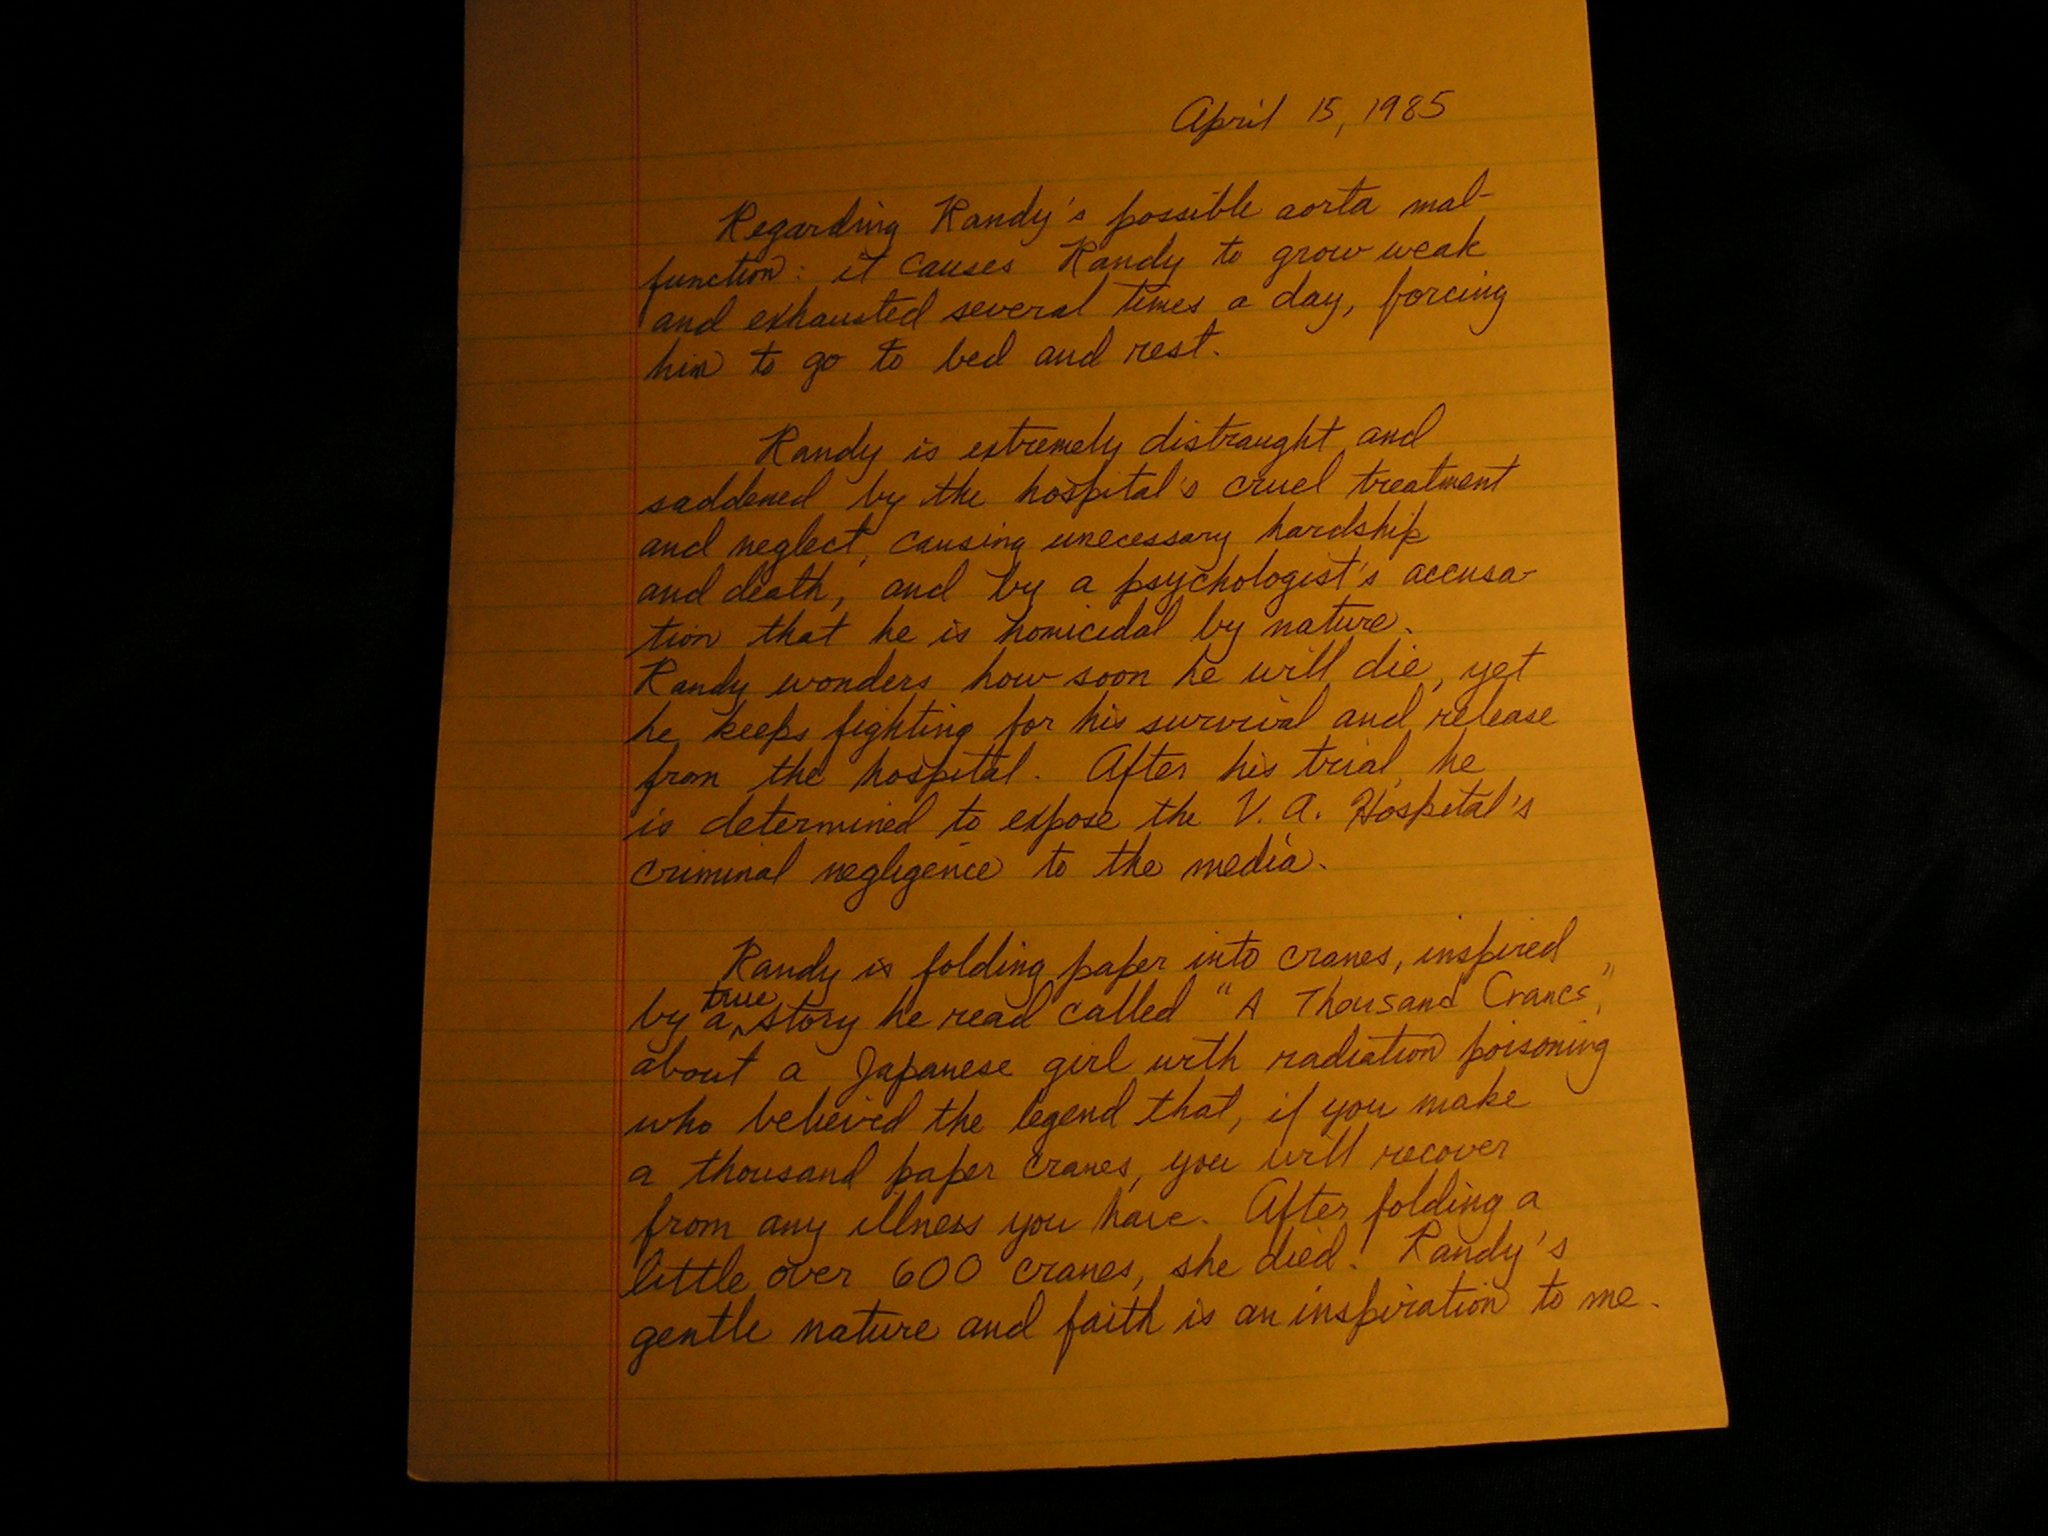 April 15, 1985
Regarding Randy's possible aorta mal-
function: it causes Randy to grow weak
and exhausted several times a day, forcing
him to go to bed and rest.
Randy is extremely distraught and
saddened by the hospital's cruel treatment
and neglect, causing unecessary hardship
and death, and by a psychologist's accusa-
tion that he is homicidal by nature.
Randy wonders how soon he will die, yet
he keeps fighting for his survival and release
from the hospital. After his trial, he
is determined to expose the V. A. Hospital's
criminal negligence to the media.
Randy is folding paper into cranes, inspired
by a true story he read called "A Thousand Cranes,"
about a Japanese girl with radiation poisoning
who believed the legend that, if you make
a thousand paper cranes, you will recover
from any illness you have. After folding a
little over 600 cranes, she died. Randy's
gentle nature and faith is an inspiration to me.